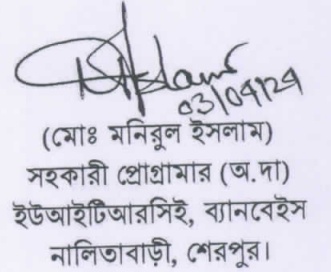 03/04/24
(মোঃ মনিরুল ইসলাম)
সহকারী প্রোগ্রামার (অ.দা)
ইউআইটিআরসিই, ব্যানবেইস
নালিতাবাড়ী, শেরপুর।